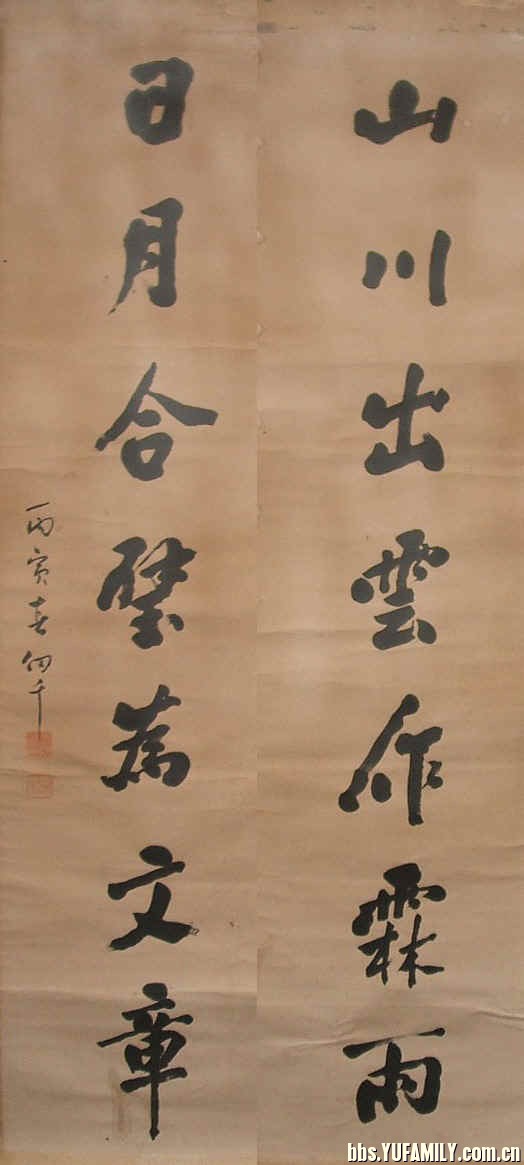 山川出雲作霖雨
日月合璧為文章
丙寅春仞千
bbs.YUFAMILY.com.cn